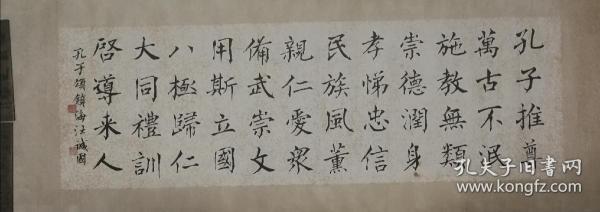 孔子推尊
萬古不泯
施教無類
崇德潤身
孝悌忠信
民族風薰
親仁愛眾
備武崇文
用斯立國
八極歸仁
大同禮訓
啓導来人
孔子頌 鎮海 法誠
孔夫子旧书网
www.kongfz.com